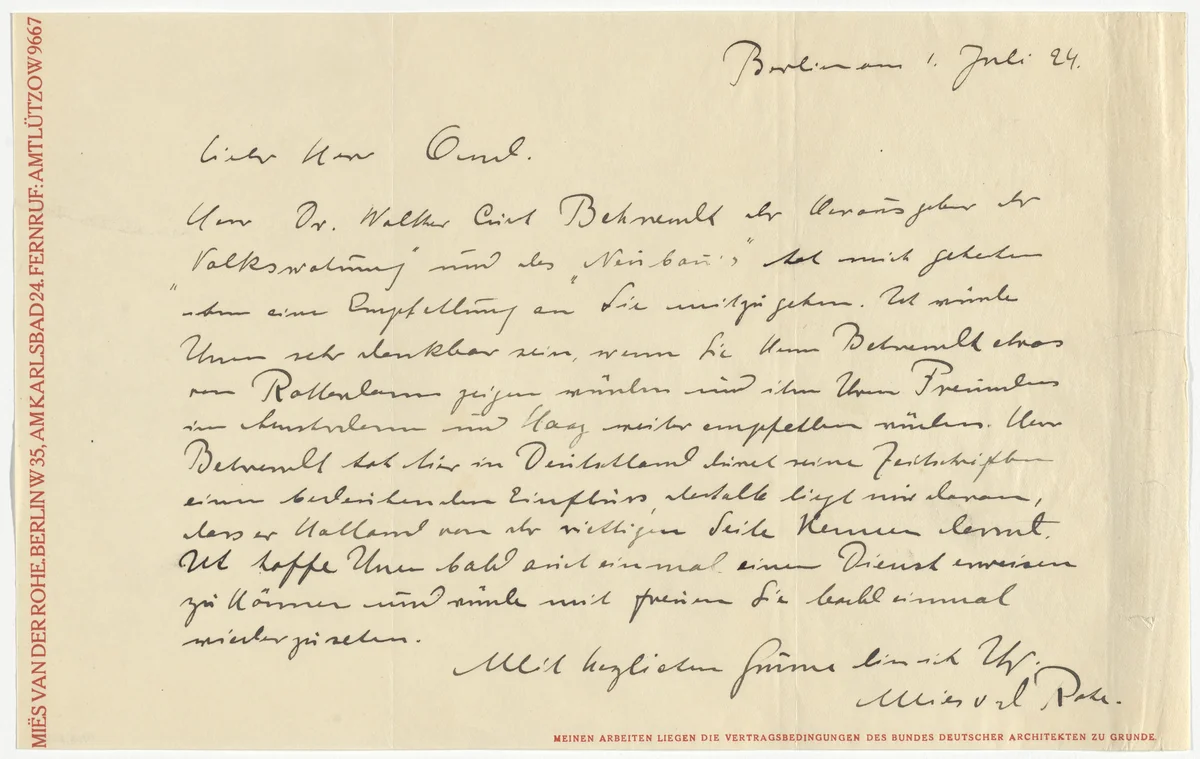 MIËS VAN DER ROHE. BERLIN W 35, AM KARLSBAD 24. FERNRUF: AMT LÜTZOW 9667
Berlin am 1. Juli 24.
Lieber Herr Oud.
Herr Dr. Walther Curt Behrendt der Herausgeber der
"Volkswohnung" und des "Neubau's" hat mich gebeten
ihm eine Empfehlung an Sie mitzugeben. Ich würde
Ihnen sehr dankbar sein, wenn Sie Herrn Behrendt etwas
von Rotterdam zeigen würden und ihn Ihren Freunden
in Amsterdam und Haag weiter empfehlen würden. Herr
Behrendt hat hier in Deutschland durch seine Zeitschriften
einen bedeutenden Einfluss, deshalb liegt mir daran,
dass er Holland von der richtigen Seite kennen lernt.
Ich hoffe Ihnen bald auch einmal einen Dienst erweisen
zu können und würde mich freuen Sie bald einmal
wiederzusehen.
Mit herzlichen Grüssen bin ich Ihr.
Mies v d Rohe.
MEINEN ARBEITEN LIEGEN DIE VERTRAGSBEDINGUNGEN DES BUNDES DEUTSCHER ARCHITEKTEN ZU GRUNDE.